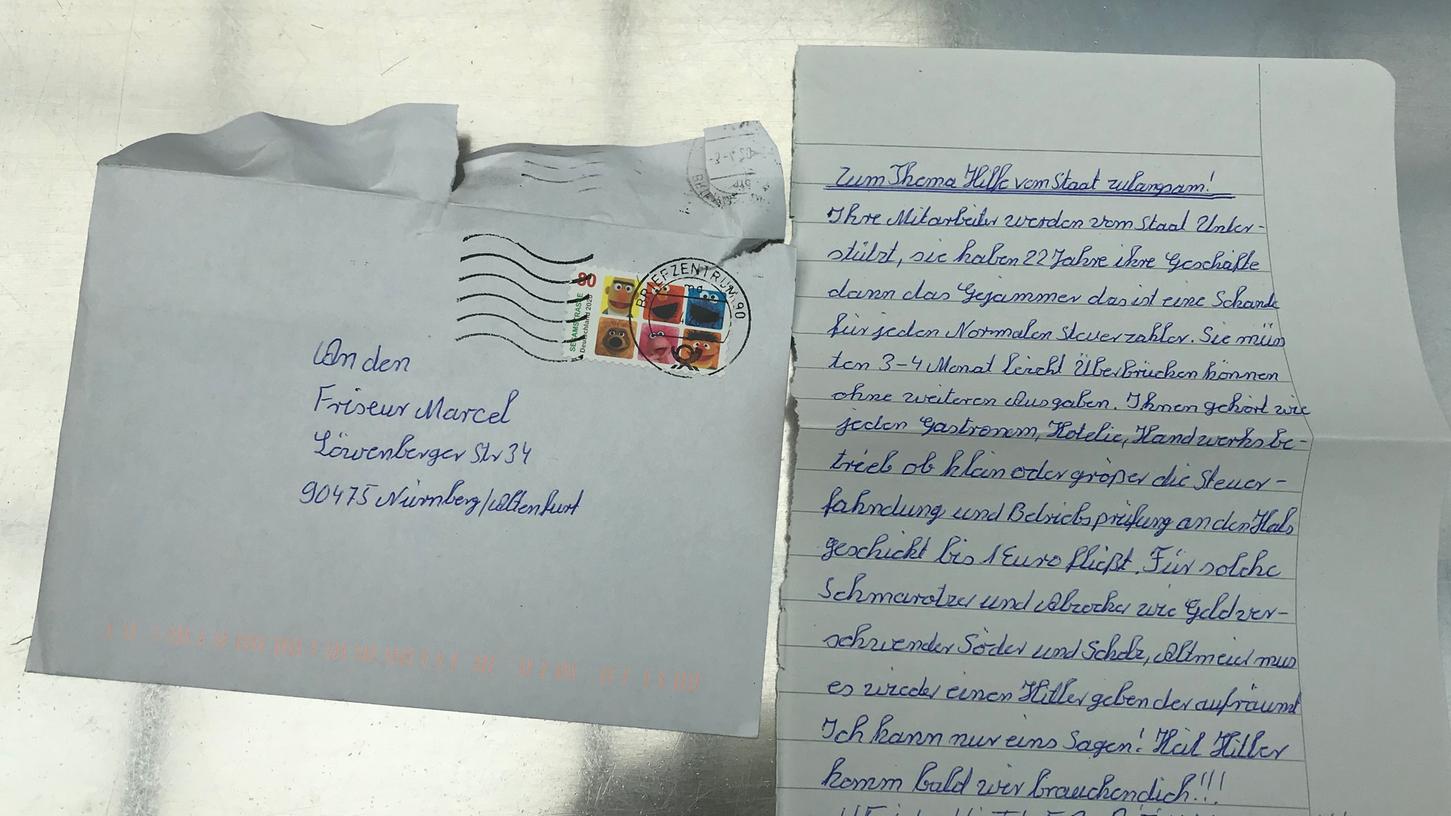 80
SESAMSTRASSE
Deutschland 2020
BRIEFZENTRUM 90
An den
Friseur Marcel
Löwenberger Str 34
90475 Nürnberg/Altenfurt
Zum Thema Hilfe vom Staat zulangsam!
Ihre Mitarbeiter werden vom Staat Unter-
stützt, sie haben 22 Jahre ihre Geschäfte
dann das Gejammer das ist eine Schande
für jeden Normalen Steuerzahler. Sie müs
ten 3-4 Monat leicht Überbrücken können
ohne weiteren Ausgaben. Ihnen gehört wie
jeden Gastronom, Hotelie, Handwerksbe-
trieb ob klein oder größer die Steuer-
fahndung und Betriebsprüfung an den Hals
geschickt bis 1 Euro fließt. Für solche
Schmarotzer und Abzocker wie Geldver-
schwender Söder und Scholz, Altmeier mus
es wieder einen Hitler geben der aufräumt
Ich kann nur eins Sagen! Heil Hitler
komm bald wir brauchen dich!!!